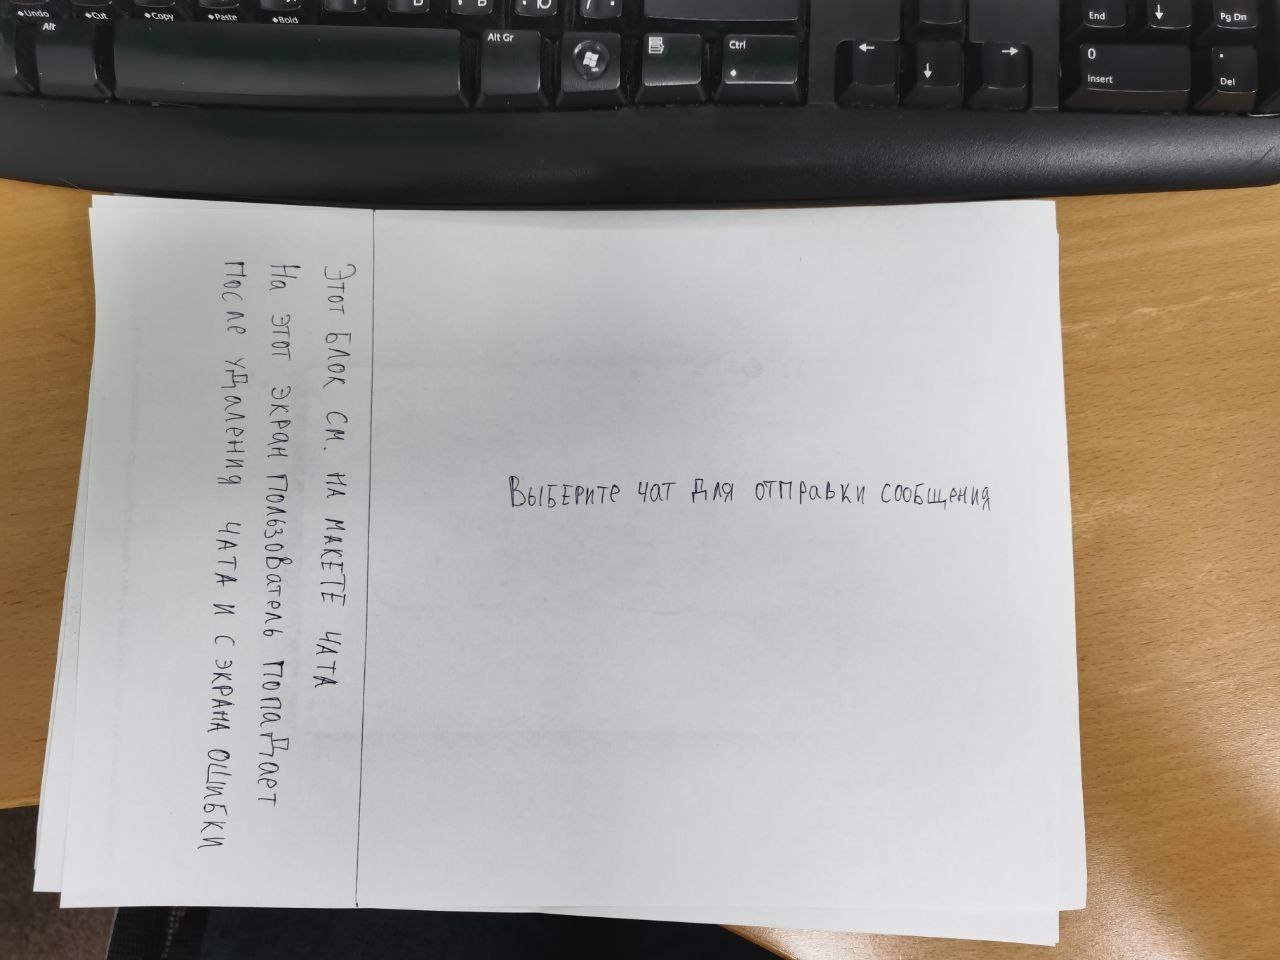 Undo
Cut
Copy
Paste
Bold
Alt
Alt Gr
Ctrl
End
Pg Dn
0
Insert
.
Del
←
↓
→
↓
Этот блок см. на макете чата
На этот экран пользователь попадает
после удаления чата и с экрана ошибки
Выберите чат для отправки сообщения